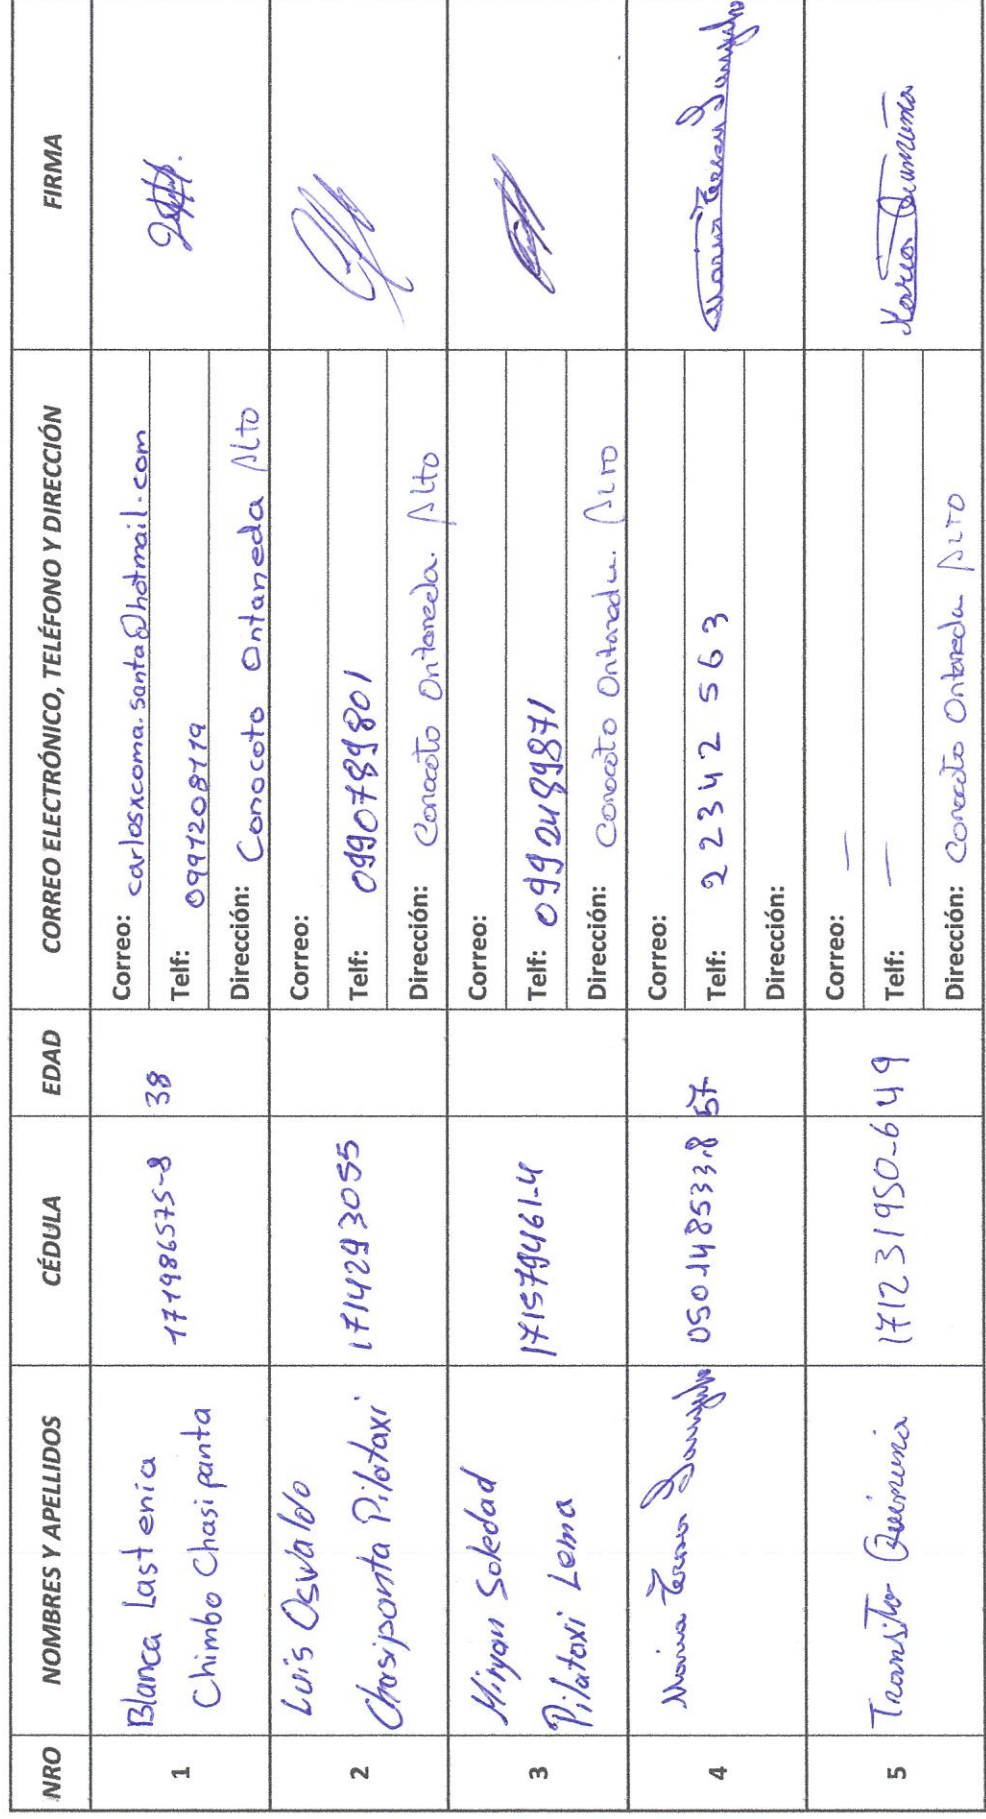 NRO NOMBRES Y APELLIDOS CÉDULA EDAD CORREO ELECTRÓNICO, TELÉFONO Y DIRECCIÓN FIRMA
1 Blanca Lastenia Chimbo Chasipanta 171986575-8 38
Correo: carlosxcoma.santa@hotmail.com
Telf: 0991208119
Dirección: Conocoto Ontaneda Alto
2 Luis Osvaldo Chasipanta Pilataxi 1714293055
Correo:
Telf: 0990789801
Dirección: Conocoto Ontaneda Alto
3 Miryan Soledad Pilataxi Lema 171579461-4
Correo:
Telf: 0992489871
Dirección: Conocoto Ontaneda Alto
4 Maria Teresa 050148533-8 57
Correo:
Telf: 2 2 3 4 2 5 6 3
Dirección:
5 Transito 171231950-6 49
Correo: —
Telf: —
Dirección: Conocoto Ontaneda Alto